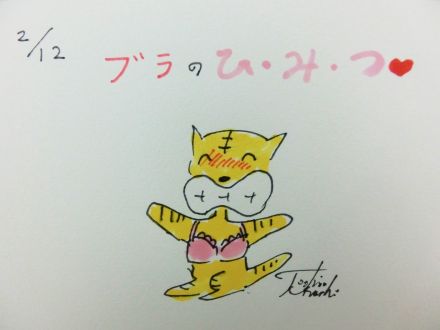 2/12
ブラのひ・み・つ♥